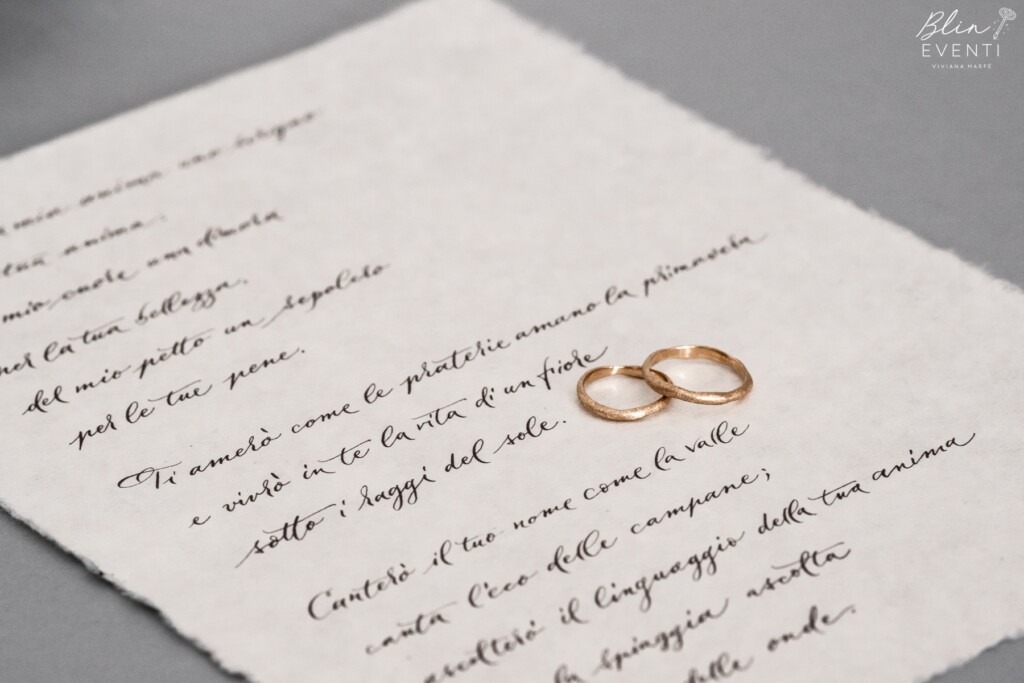 mia anima
tua anima.
mio cuore una dimora
per la tua bellezza.
del mio petto un sepolcro
per le tue pene.
Ti amerò come le praterie amano la primavera
e vivrò in te la vita di un fiore
sotto i raggi del sole.
Canterò il tuo nome come la valle
canta l'eco delle campane;
ascolterò il linguaggio della tua anima
la spiaggia ascolta
delle onde.
Blin
EVENTI
VIVIANA HARFE